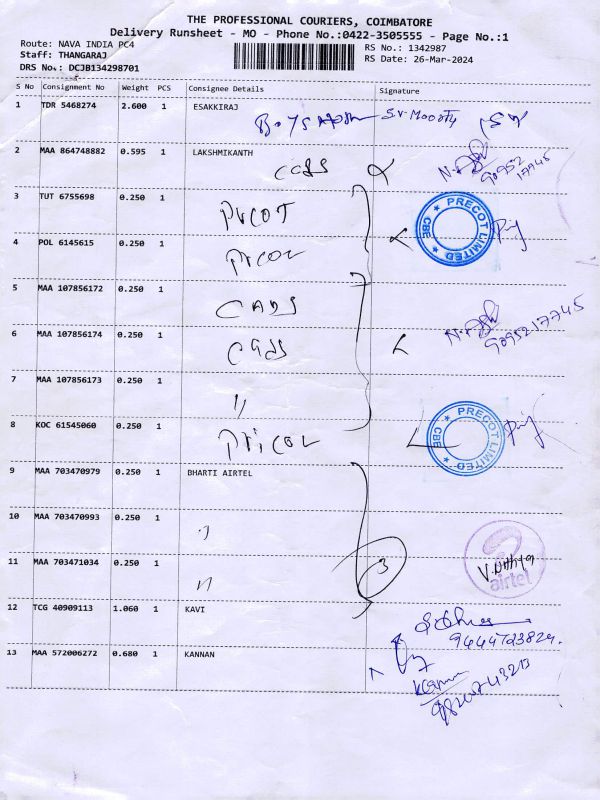 THE PROFESSIONAL COURIERS, COIMBATORE
Delivery Runsheet - MO - Phone No.:0422-3505555 - Page No.:1
Route: NAVA INDIA PC4
Staff: THANGARAJ
DRS No.: DCJB134298701
RS No.: 1342987
RS Date: 26-Mar-2024
S No Consignment No Weight PCS Consignee Details Signature
1 TDR 5468274 2.600 1 ESAKKIRAJ
2 MAA 864748882 0.595 1 LAKSHMIKANTH
90952
17745
3 TUT 6755698 0.250 1
PRECOT LIMITED
CBE
4 POL 6145615 0.250 1
5 MAA 107856172 0.250 1
6 MAA 107856174 0.250 1
9095217745
7 MAA 107856173 0.250 1
"
8 KOC 61545060 0.250 1 Pricol
PRECOT LIMITED
CBE
9 MAA 703470979 0.250 1 BHARTI AIRTEL
10 MAA 703470993 0.250 1 "
11 MAA 703471034 0.250 1 "
3
V. Nithya
airtel
12 TCG 40909113 1.060 1 KAVI
13 MAA 572006272 0.680 1 KANNAN